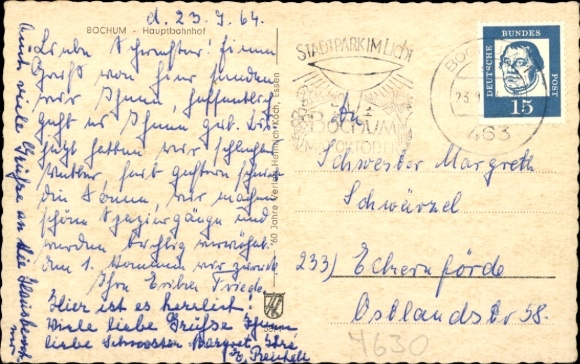 d. 23.9.64.
BOCHUM - Hauptbahnhof
Liebe Schwester! Einen
Gruß von hier senden
wir Ihnen, hoffentlich
geht es Ihnen gut. Bis
jetzt hatten wir schlechtes
Wetter, seit gestern scheint
die Sonne, wir machen
schöne Spaziergänge und
werden tüchtig verwöhnt.
Am 1. kommen wir zurück
Ihre Erika Friede
Hier ist es herrlich!
Viele liebe Grüße Ihnen
liebe Schwester Margret, Ihre
Auch viele Grüße an die
60 Jahre Verlag Heinrich Koch, Essen
STADTPARK IM LICHT
BOCHUM
OKTOBER
BOCHUM
23.9
463
DEUTSCHE BUNDESPOST
15
An
Schwester Margreth
Schwürzel
233) Eckernförde
Ostlandstr 58.
4630